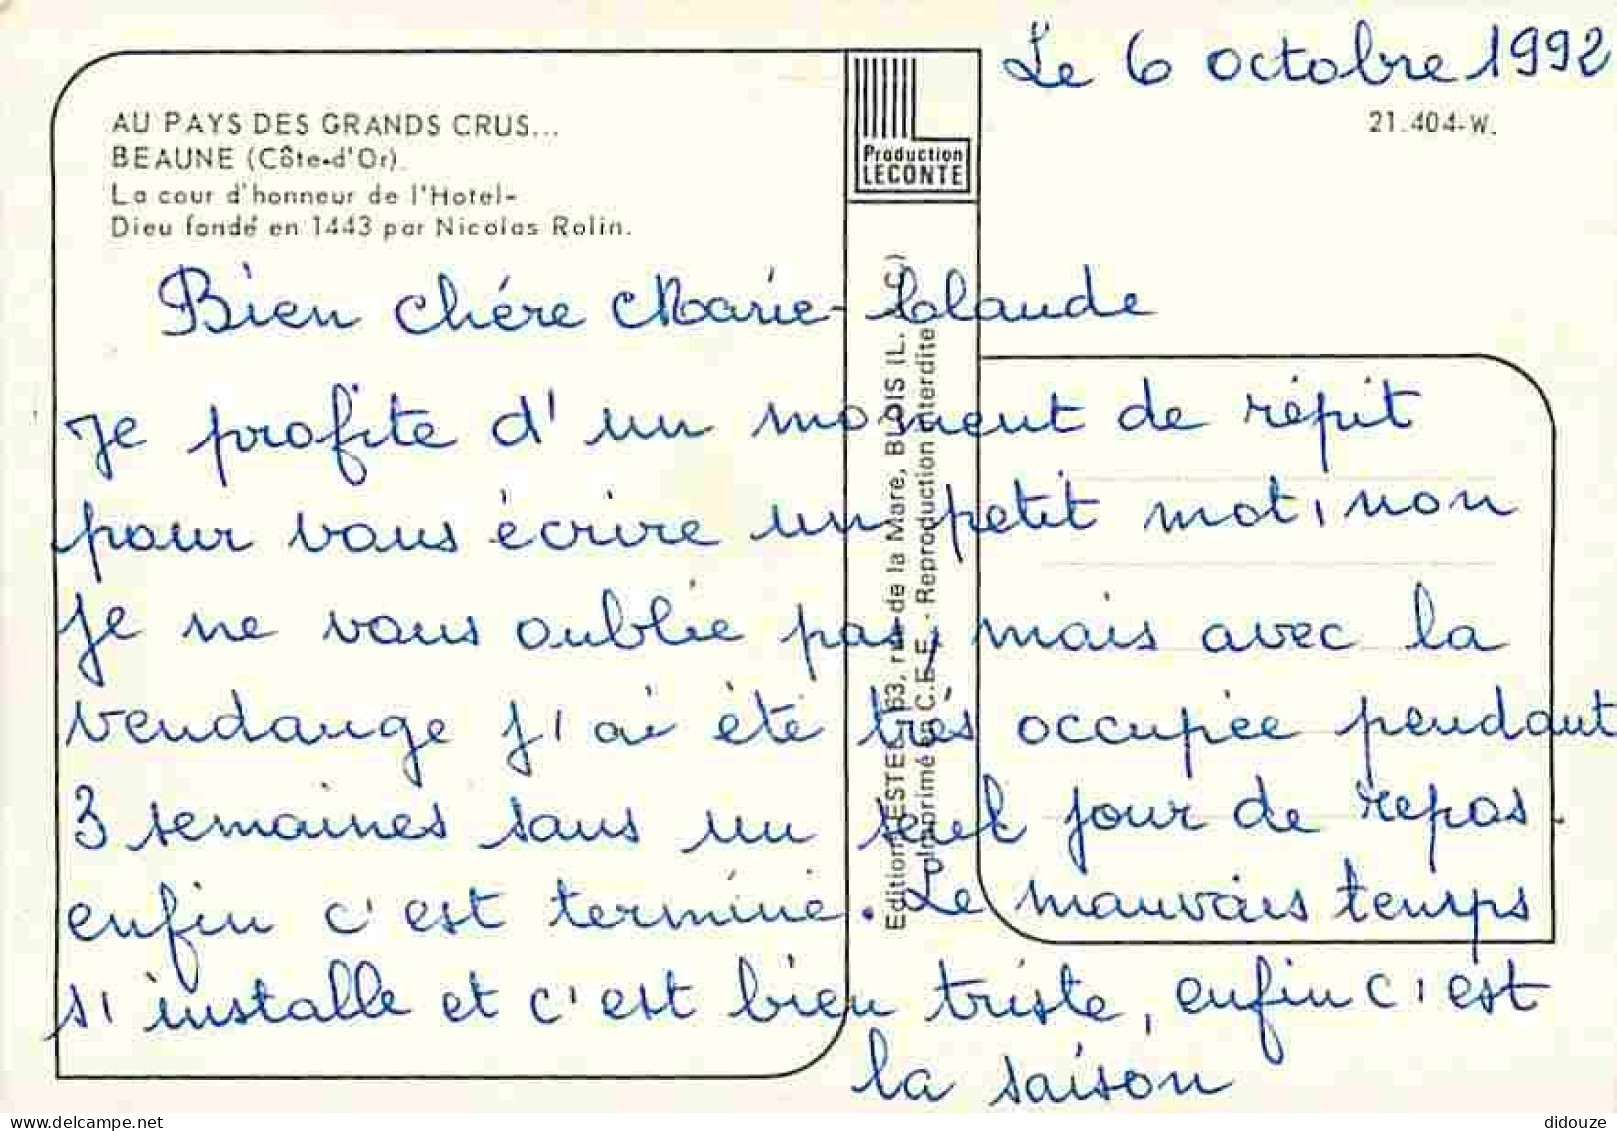 Le 6 octobre 1992
21.404-W.
AU PAYS DES GRANDS CRUS...
BEAUNE (Côte-d'Or).
La cour d'honneur de l'Hotel-
Dieu fondé en 1443 par Nicolas Rolin.
Production
LECONTE
Bien chére Marie-Claude
Je profite d'un moment de répit
pour vous écrire un petit mot, non
je ne vous oublie pas, mais avec la
vendange j'ai été trés occupée pendant
3 semaines sans un seul jour de repos.
enfin c'est terminé. Le mauvais temps
s'installe et c'est bien triste, enfin c'est
la saison
Editions ESTEL, 63, rue de la Mare, BLOIS (L. C.)
Imprimé en C.E.E. - Reproduction interdite
didouze